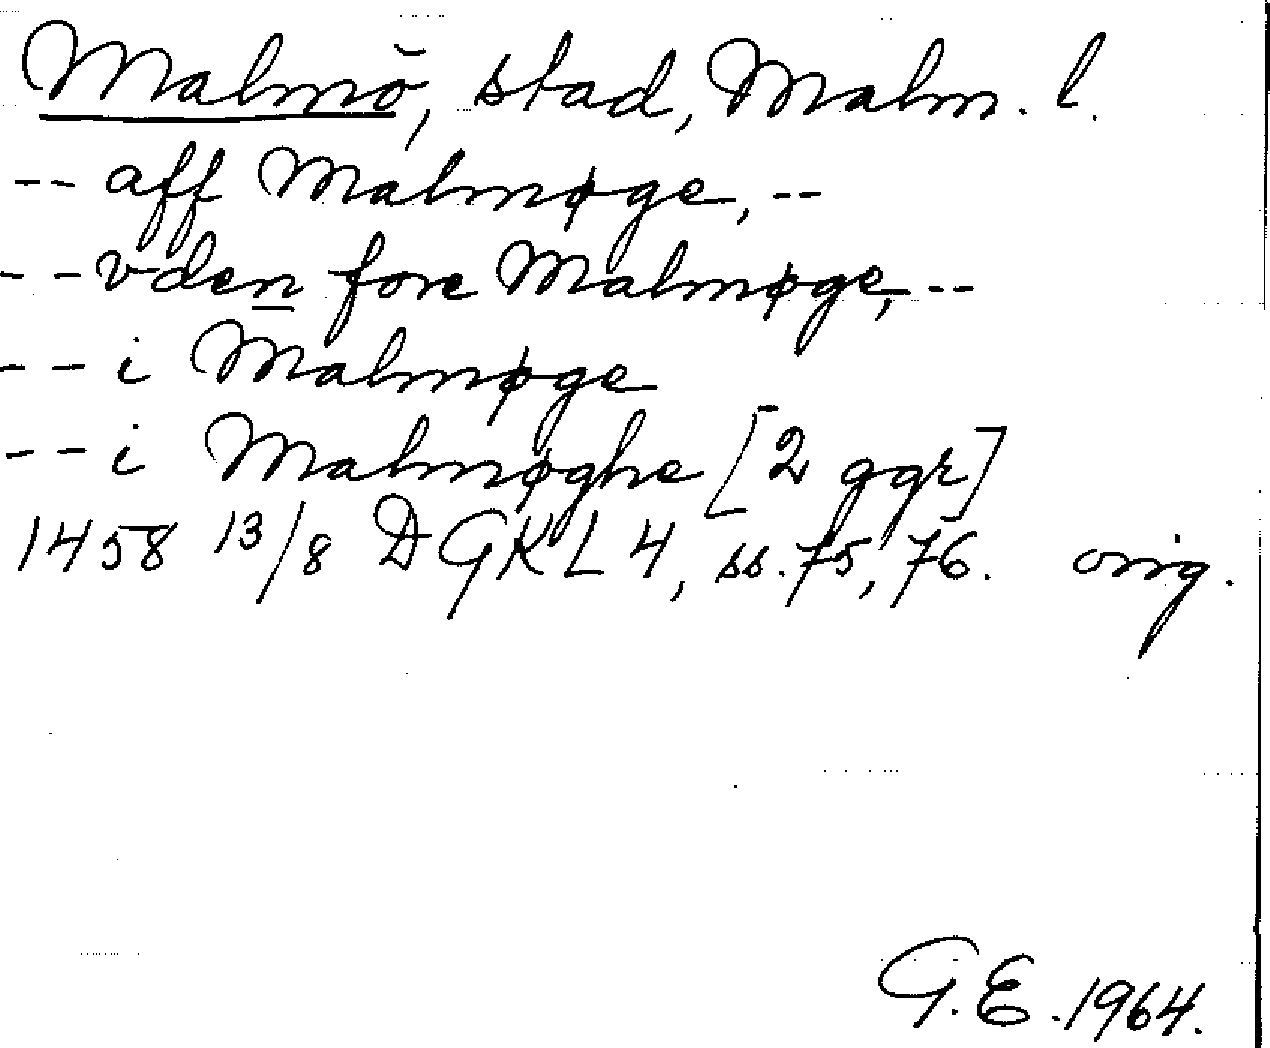 Malmö, stad, Malm. l.
-- aff Malmøge, --
-- vden fore Malmøge, --
-- i Malmøge
-- i Malmøghe [2 ggr]
1458 13/8 DGKL 4, ss. 75, 76. orig.
G.E. 1964.